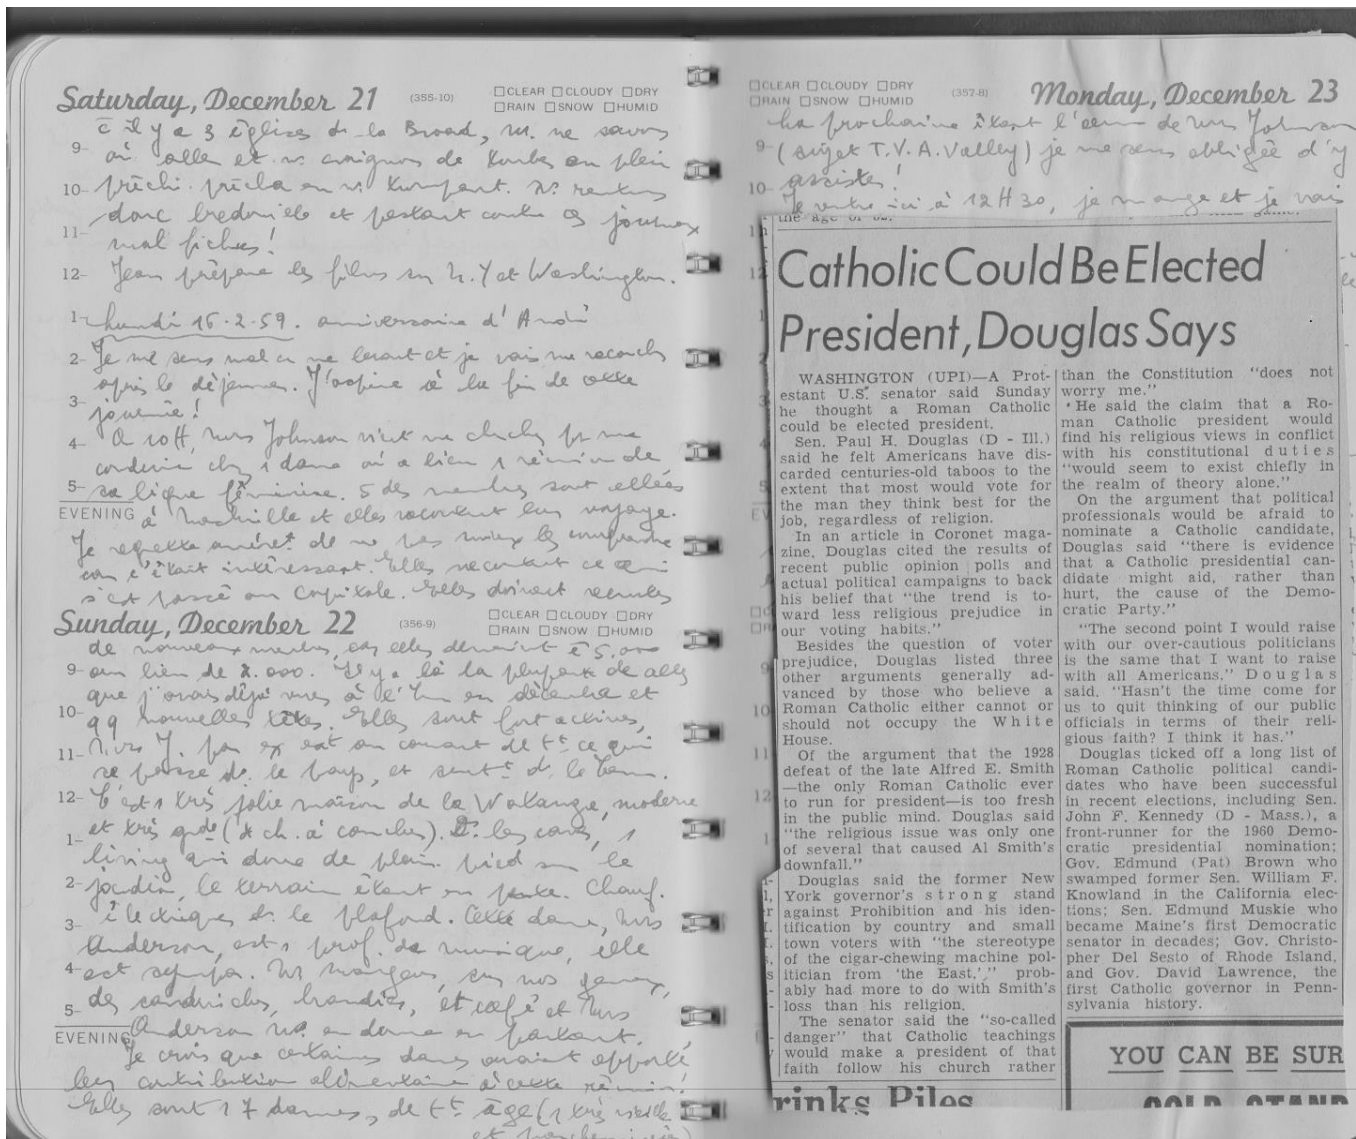 Saturday, December 21
(355-10)
CLEAR CLOUDY DRY
RAIN SNOW HUMID
il y a 3 églises de la Broad, ns. ne savons
où aller et ns. craignons de tomber en plein
prêchi-prêcha en ns. trompant. Ns. rentrons
donc bredouille et pestant contre ces journaux
mal fichus!
Jean prépare les films sur N.Y et Washington.
Lundi 16-2-59. anniversaire d'André
Je me sens mal en me levant et je vais me recoucher
après le déjeuner. J'aspire à la fin de cette
journée!
A 10H, Mrs Johnson vient me chercher pr me
conduire chez 1 dame où a lieu 1 réunion de
sa ligue féminine. 5 des membres sont allées
EVENING
à Nashville et elles racontent leur voyage.
Je regrette amèrt de ne pas mieux les comprendre
car c'était intéressant. Elles racontent ce qui
s'est passé au Capitole. Elles doivent recruter
Sunday, December 22
(356-9)
CLEAR CLOUDY DRY
RAIN SNOW HUMID
de nouveaux membres, car elles
au lieu de 2.000. Il y a là la plupart de celles
que j'avais déjà vues à en décembre et
qq nouvelles têtes. Elles sont fort actives,
Mrs J. par ex est au courant de tt ce qui
se passe ds. le pays, et
C'est 1 très jolie maison de la Watauga, moderne
et très gde ( ch. à coucher). Ds. les caves, 1
living qui donne de plain pied sur le
jardin, le terrain étant en pente. Chauf.
électrique ds. le plafond. Cette dame, Mrs
Anderson, est 1 prof. de musique, elle
est sympa. Ns mangeons, sur nos genoux,
des sandwiches, et café et Mrs
EVENING
Anderson ns. en donne en partant.
Je crois que certaines dames avaient apporté
leur contribution alimentaire à cette réunion!
Elles sont 17 dames, de tt âge (1 très vieille
et
CLEAR CLOUDY DRY
RAIN SNOW HUMID
(357-8)
Monday, December 23
La prochaine étant l'œuvre de Mrs Johnson
(sujet T.V.A. Valley) je me sens obligée d'y
assister!
Je rentre ici à 12H30, je mange et je vais
the age of 62.
Catholic Could Be Elected
President, Douglas Says
WASHINGTON (UPI)—A Prot-
estant U.S. senator said Sunday
he thought a Roman Catholic
could be elected president.
Sen. Paul H. Douglas (D - Ill.)
said he felt Americans have dis-
carded centuries-old taboos to the
extent that most would vote for
the man they think best for the
job, regardless of religion.
In an article in Coronet maga-
zine, Douglas cited the results of
recent public opinion polls and
actual political campaigns to back
his belief that "the trend is to-
ward less religious prejudice in
our voting habits."
Besides the question of voter
prejudice, Douglas listed three
other arguments generally ad-
vanced by those who believe a
Roman Catholic either cannot or
should not occupy the White
House.
Of the argument that the 1928
defeat of the late Alfred E. Smith
—the only Roman Catholic ever
to run for president—is too fresh
in the public mind. Douglas said
"the religious issue was only one
of several that caused Al Smith's
downfall."
Douglas said the former New
York governor's strong stand
against Prohibition and his iden-
tification by country and small
town voters with "the stereotype
of the cigar-chewing machine pol-
itician from 'the East,'," prob-
ably had more to do with Smith's
loss than his religion.
The senator said the "so-called
danger" that Catholic teachings
would make a president of that
faith follow his church rather
than the Constitution "does not
worry me."
He said the claim that a Ro-
man Catholic president would
find his religious views in conflict
with his constitutional duties
"would seem to exist chiefly in
the realm of theory alone."
On the argument that political
professionals would be afraid to
nominate a Catholic candidate,
Douglas said "there is evidence
that a Catholic presidential can-
didate might aid, rather than
hurt, the cause of the Demo-
cratic Party."
"The second point I would raise
with our over-cautious politicians
is the same that I want to raise
with all Americans," Douglas
said. "Hasn't the time come for
us to quit thinking of our public
officials in terms of their reli-
gious faith? I think it has."
Douglas ticked off a long list of
Roman Catholic political candi-
dates who have been successful
in recent elections, including Sen.
John F. Kennedy (D - Mass.), a
front-runner for the 1960 Demo-
cratic presidential nomination;
Gov. Edmund (Pat) Brown who
swamped former Sen. William F.
Knowland in the California elec-
tions; Sen. Edmund Muskie who
became Maine's first Democratic
senator in decades; Gov. Christo-
pher Del Sesto of Rhode Island,
and Gov. David Lawrence, the
first Catholic governor in Penn-
sylvania history.
YOU CAN BE SUR